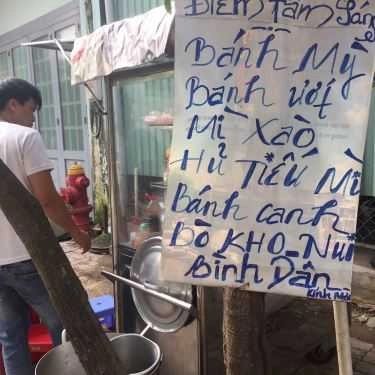 Điểm Tâm Sáng
Bánh Mỳ
Bánh ướt
Mì Xào
Hủ Tiếu Mì
Bánh canh
Bò KHO_Nui
Bình Dân
Kính Mời